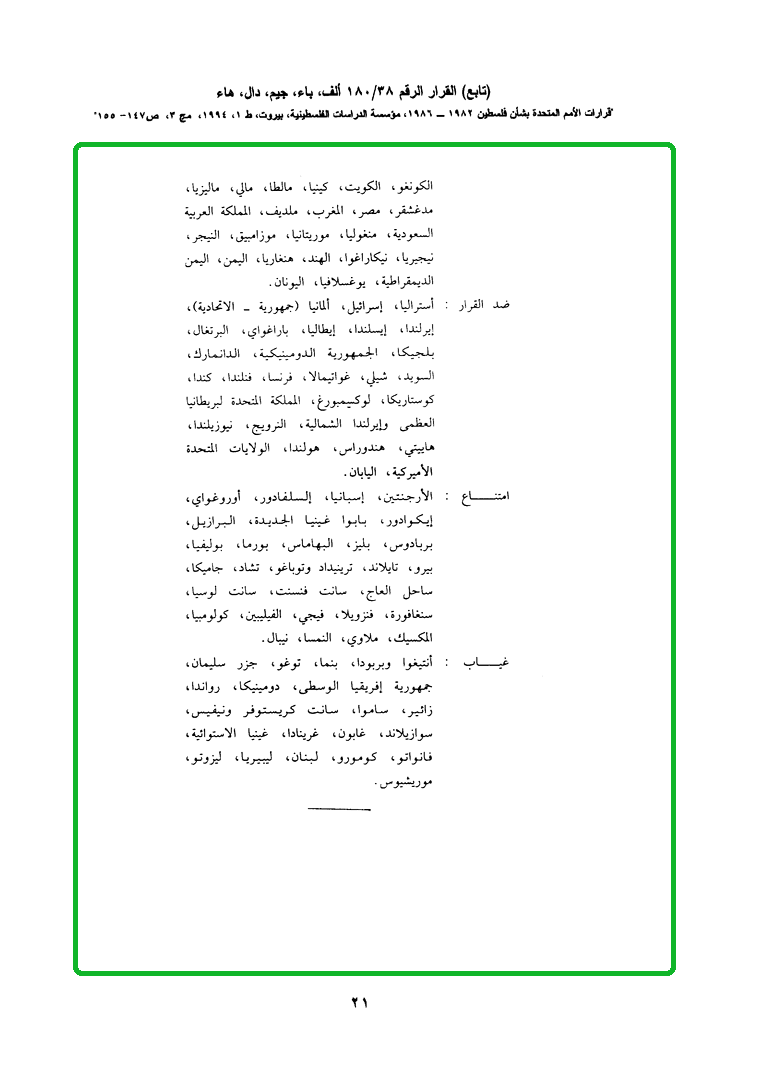 (تابع) القرار الرقم ١٨٠/٣٨ ألف، باء، جيم، دال، هاء
"قرارات الأمم المتحدة بشأن فلسطين ١٩٨٢ ــ ١٩٨٦، مؤسسة الدراسات الفلسطينية، بيروت، ط ١، ١٩٩٤، مج ٣، ص١٤٧- ١٥٥"
الكونغو، الكويت، كينيا، مالطا، مالي، ماليزيا،
مدغشقر، مصر، المغرب، ملديف، المملكة العربية
السعودية، منغوليا، موريتانيا، موزامبيق، النيجر،
نيجيريا، نيكاراغوا، الهند، هنغاريا، اليمن، اليمن
الديمقراطية، يوغسلافيا، اليونان.
ضد القرار : أستراليا، إسرائيل، ألمانيا (جمهورية ــ الاتحادية)،
إيرلندا، إيسلندا، إيطاليا، باراغواي، البرتغال،
بلجيكا، الجمهورية الدومينيكية، الدانمارك،
السويد، شيلي، غواتيمالا، فرنسا، فنلندا، كندا،
كوستاريكا، لوكسيمبورغ، المملكة المتحدة لبريطانيا
العظمى وإيرلندا الشمالية، النرويج، نيوزيلندا،
هاييتي، هندوراس، هولندا، الولايات المتحدة
الأميركية، اليابان.
امتنـــــاع : الأرجنتين، إسبانيا، إلسلفادور، أوروغواي،
إيكوادور، بابوا غينيا الجديدة، البرازيل،
بربادوس، بليز، البهاماس، بورما، بوليفيا،
بيرو، تايلاند، ترينيداد وتوباغو، تشاد، جاميكا،
ساحل العاج، سانت فنسنت، سانت لوسيا،
سنغافورة، فنزويلا، فيجي، الفيليبين، كولومبيا،
المكسيك، ملاوي، النمسا، نيبال.
غيـــــاب : أنتيغوا وبربودا، بنما، توغو، جزر سليمان،
جمهورية إفريقيا الوسطى، دومينيكا، رواندا،
زائير، ساموا، سانت كريستوفر ونيفيس،
سوازيلاند، غابون، غرينادا، غينيا الاستوائية،
فانواتو، كومورو، لبنان، ليبيريا، ليزوتو،
موريشيوس.
٢١